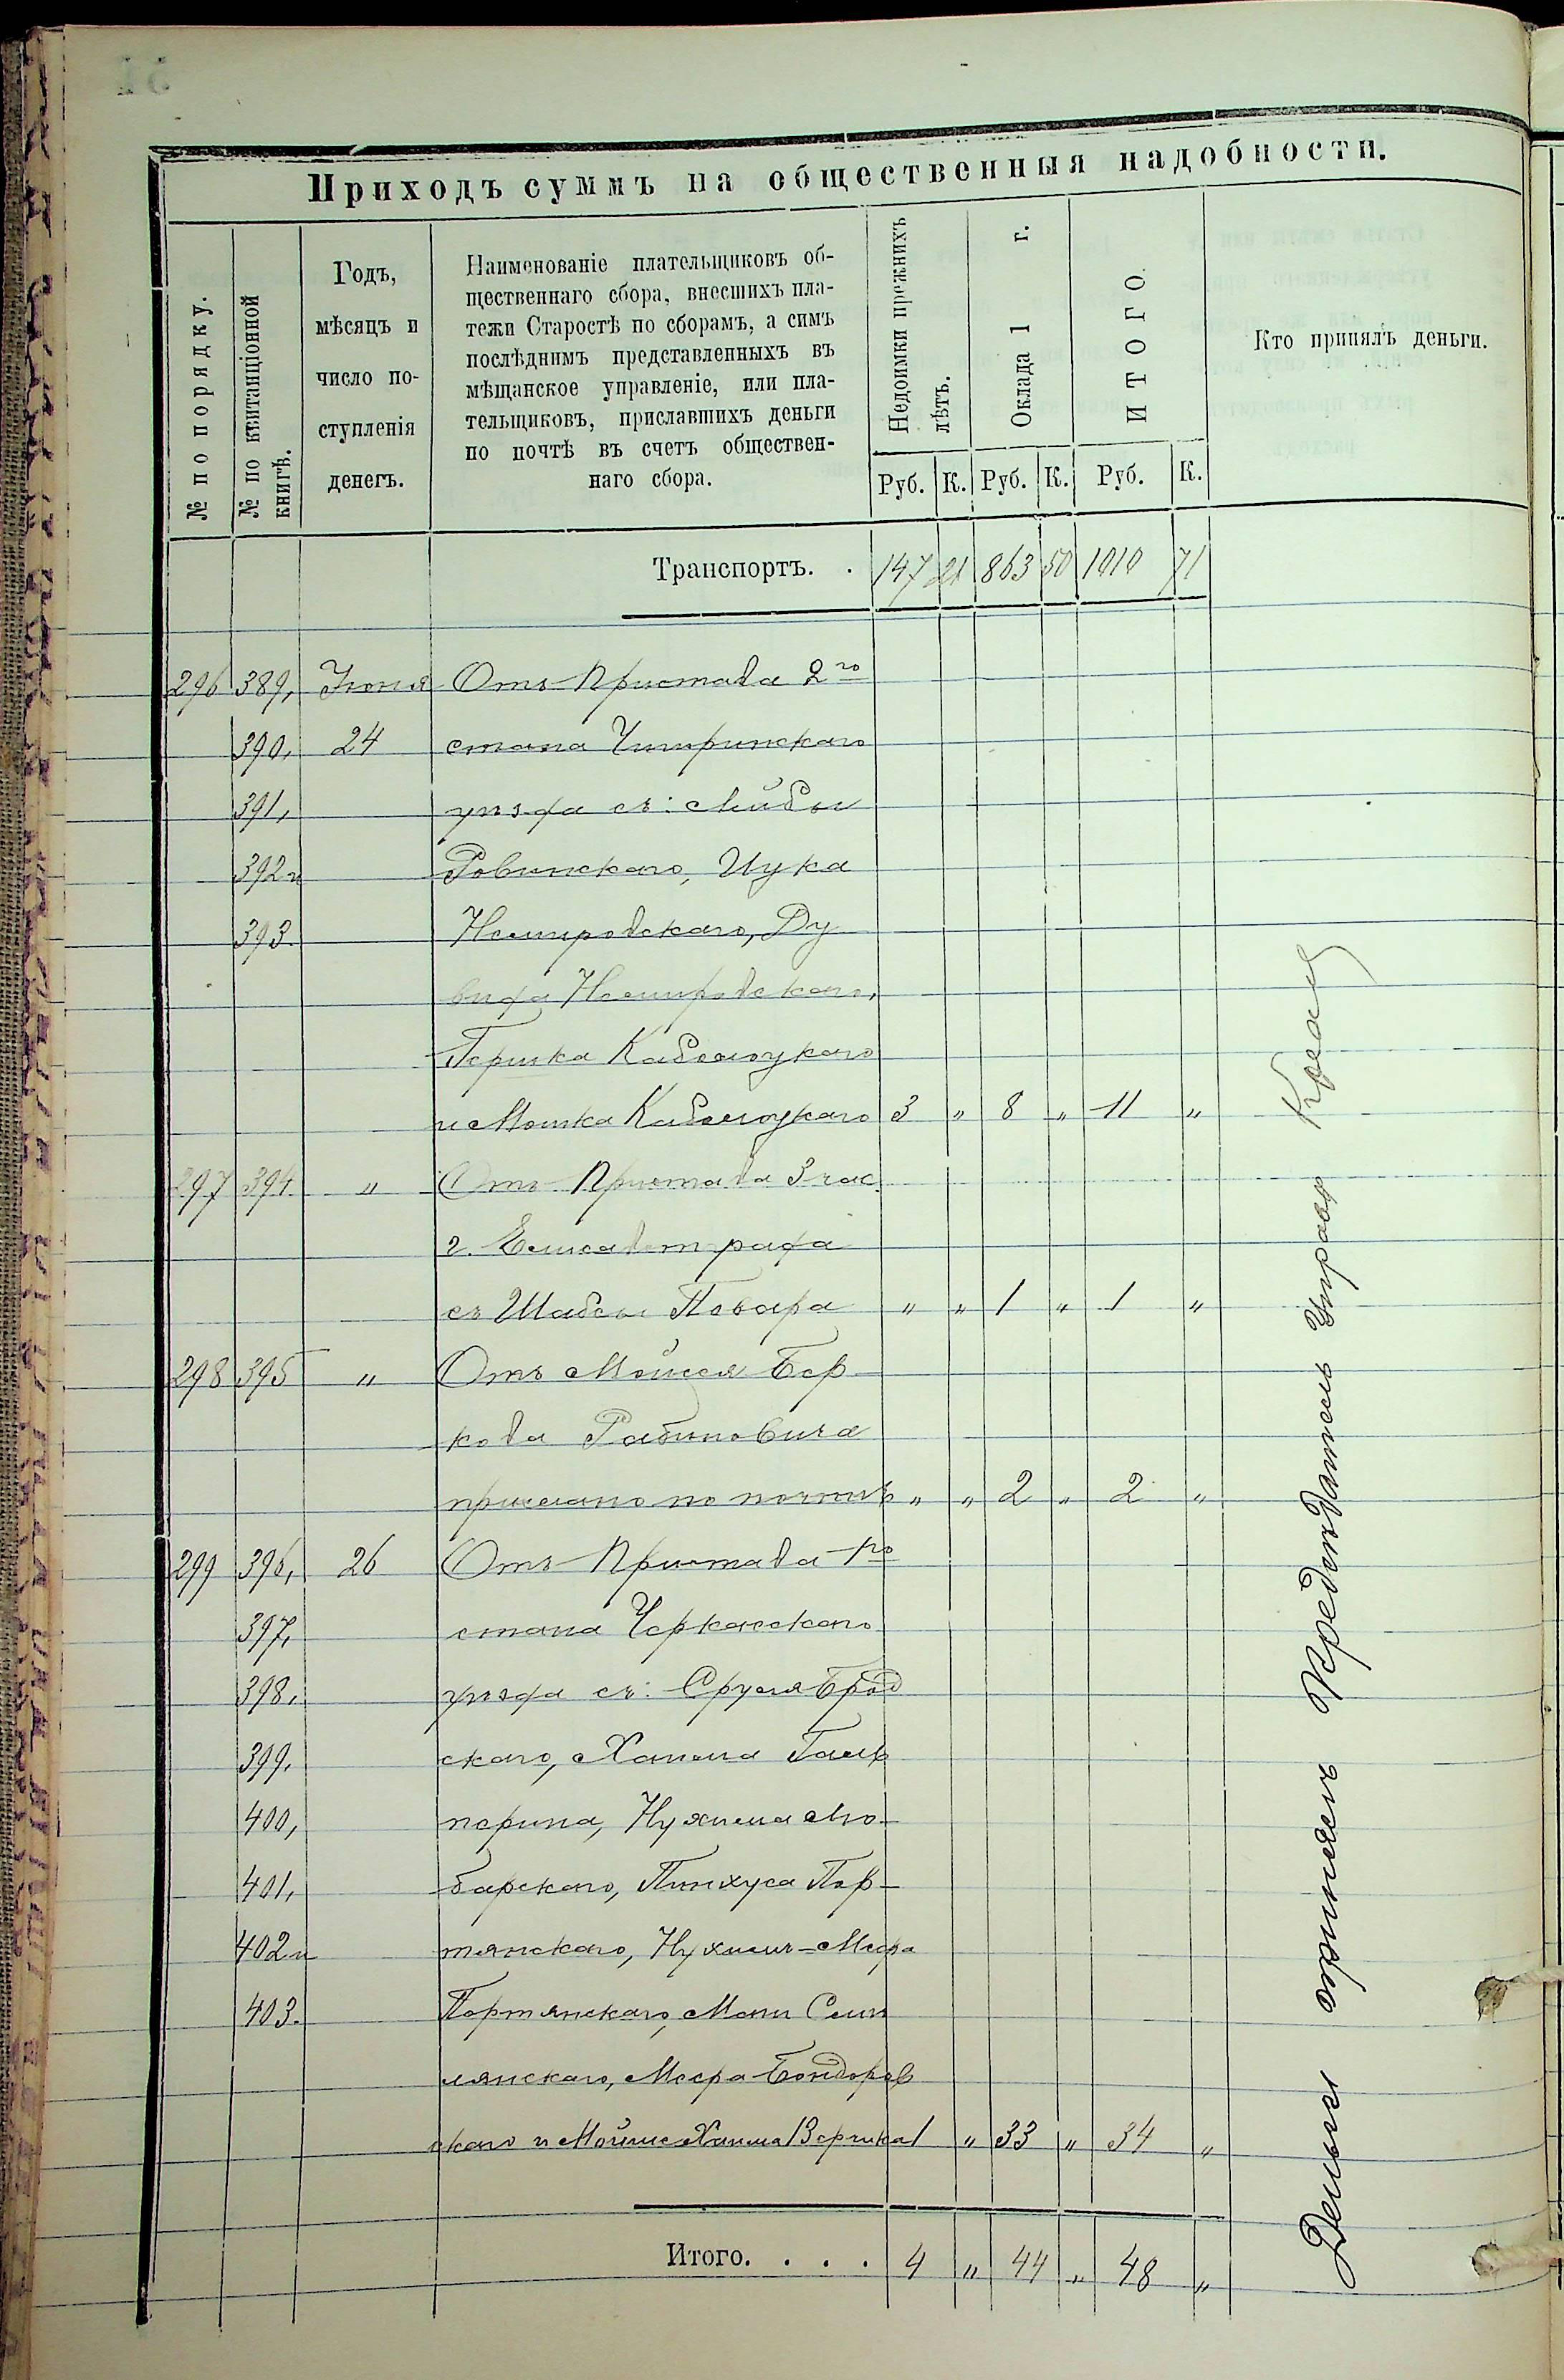 Приходъ суммъ на общественныя надобности.
№ по порядку.
№ по квитанціонной книгѣ.
Годъ,
мѣсяцъ и
число по-
ступленія
денегъ.
Наименованіе плательщиковъ об-
щественнаго сбора, внесшихъ пла-
тежи Старостѣ по сборамъ, а симъ
послѣднимъ представленныхъ въ
мѣщанское управленіе, или пла-
тельщиковъ, приславшихъ деньги
по почтѣ въ счетъ обществен-
наго сбора.
Недоимки прежнихъ лѣтъ.
Оклада 1 г.
ИТОГО.
Кто принялъ деньги.
Руб. К. Руб. К. Руб. К.
Транспортъ. . 147 21 863 50 1010 71
296 389, Іюня Отъ Пристава 2го
390, 24 стана Чигиринскаго
391, уѣзда съ: Лейбы
392 и Ровинскаго, Ицка
393. Немировскаго, Ду
вида Немировскаго,
Гершка Каблоуцкаго
и Мошка Каблоуцкаго 3 „ 8 „ 11 „
297 394 „ Отъ Пристава 3 час.
г. Елисаветграда
съ Шабсы Повара „ „ 1 „ 1 „
298 395 „ Отъ Мойсея Бер-
кова Рабиновича
прислано по почтѣ „ „ 2 „ 2 „
299 396, 26 Отъ Пристава 1го
стана Черкасскаго
397,
398, уѣзда съ: Сруля Брод
399, скаго, Хаима Галь
400, перина, Нухима Лю-
401, барскаго, Пинхуса Пор-
402 и тянскаго, Нухимъ-Меера
403. Портянскаго, Мани Сми
лянскаго, Меера Бондарев
скаго и Мойше Хаима Зорика 1 „ 33 „ 34 „
Итого. . . . 4 „ 44 „ 48 „
Деньги принялъ Предсѣдатель Управы